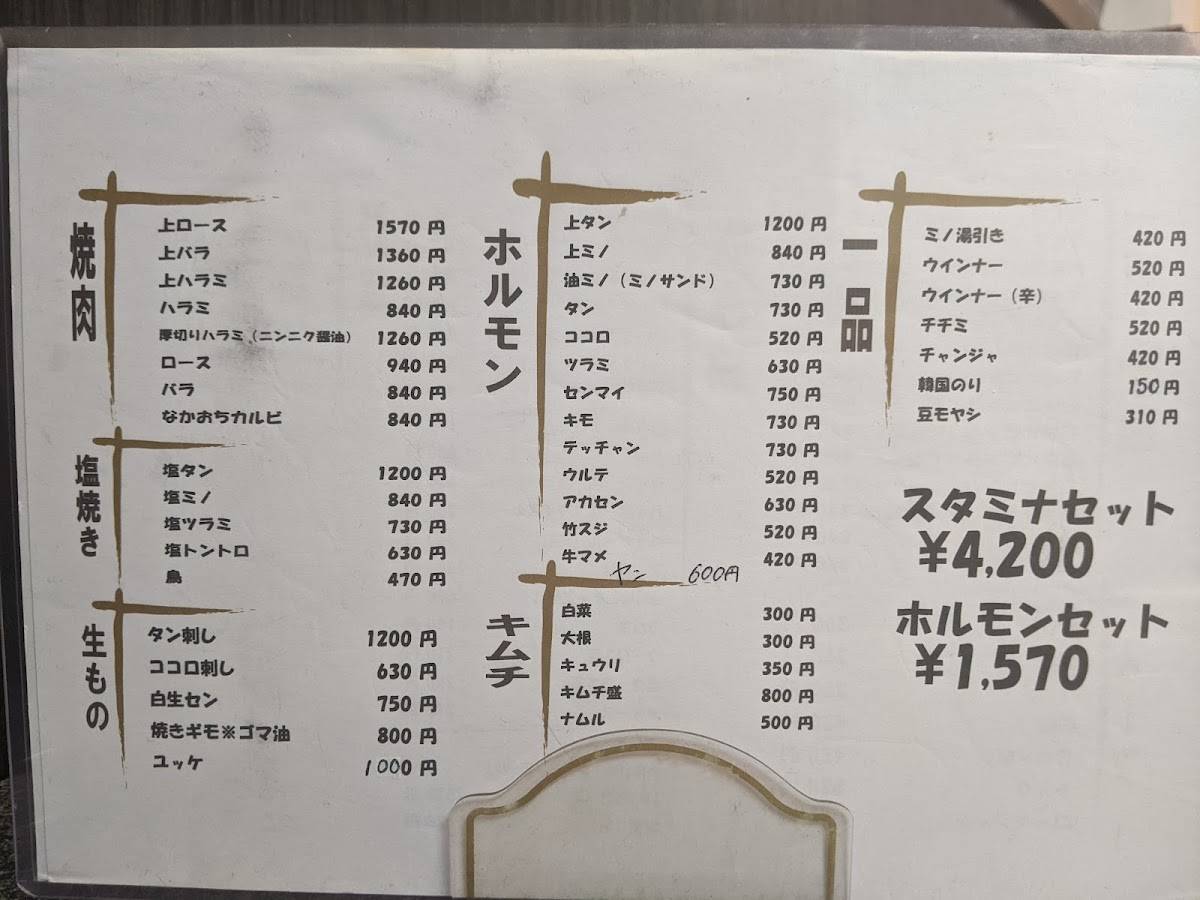 焼肉
上ロース 1570 円
上バラ 1360 円
上ハラミ 1260 円
ハラミ 840 円
厚切りハラミ（ニンニク醤油） 1260 円
ロース 940 円
バラ 840 円
なかおちカルビ 840 円
塩焼き
塩タン 1200 円
塩ミノ 840 円
塩ツラミ 730 円
塩トントロ 630 円
鳥 470 円
生もの
タン刺し 1200 円
ココロ刺し 630 円
白生セン 750 円
焼きギモ※ゴマ油 800 円
ユッケ 1000 円
ホルモン
上タン 1200 円
上ミノ 840 円
油ミノ（ミノサンド） 730 円
タン 730 円
ココロ 520 円
ツラミ 630 円
センマイ 750 円
キモ 730 円
テッチャン 730 円
ウルテ 520 円
アカセン 630 円
竹スジ 520 円
牛マメ 420 円
ヤン 600円
キムチ
白菜 300 円
大根 300 円
キュウリ 350 円
キムチ盛 800 円
ナムル 500 円
一品
ミノ湯引き 420 円
ウインナー 520 円
ウインナー（辛） 420 円
チヂミ 520 円
チャンジャ 420 円
韓国のり 150円
豆モヤシ 310 円
スタミナセット
¥4,200
ホルモンセット
¥1,570